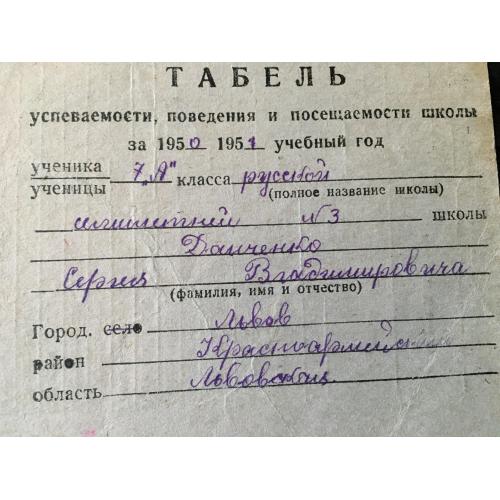 ТАБЕЛЬ
успеваемости, поведения и посещаемости школы
за 1950 1951 учебный год
ученика
ученицы 7 „А" класса русской
(полное название школы)
семилетней №3 школы
Данченко
Сергея Владимировича
(фамилия, имя и отчество)
Город. село Львов
район Красноармейский
область Львовская